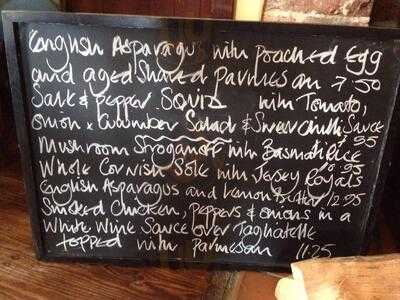 English Asparagus with poached Egg
and aged Shaved parmesan 7.50
Salt & pepper Squid with Tomato,
onion & Cucumber Salad & Sweet Chilli Sauce
Mushroom Stroganoff with Basmati Rice
Whole Cornish Sole with Jersey Royals
English Asparagus and Lemon Butter 12.95
Smoked Chicken, peppers & onions in a
White Wine Sauce over Tagliatelle
topped with parmesan 11.25